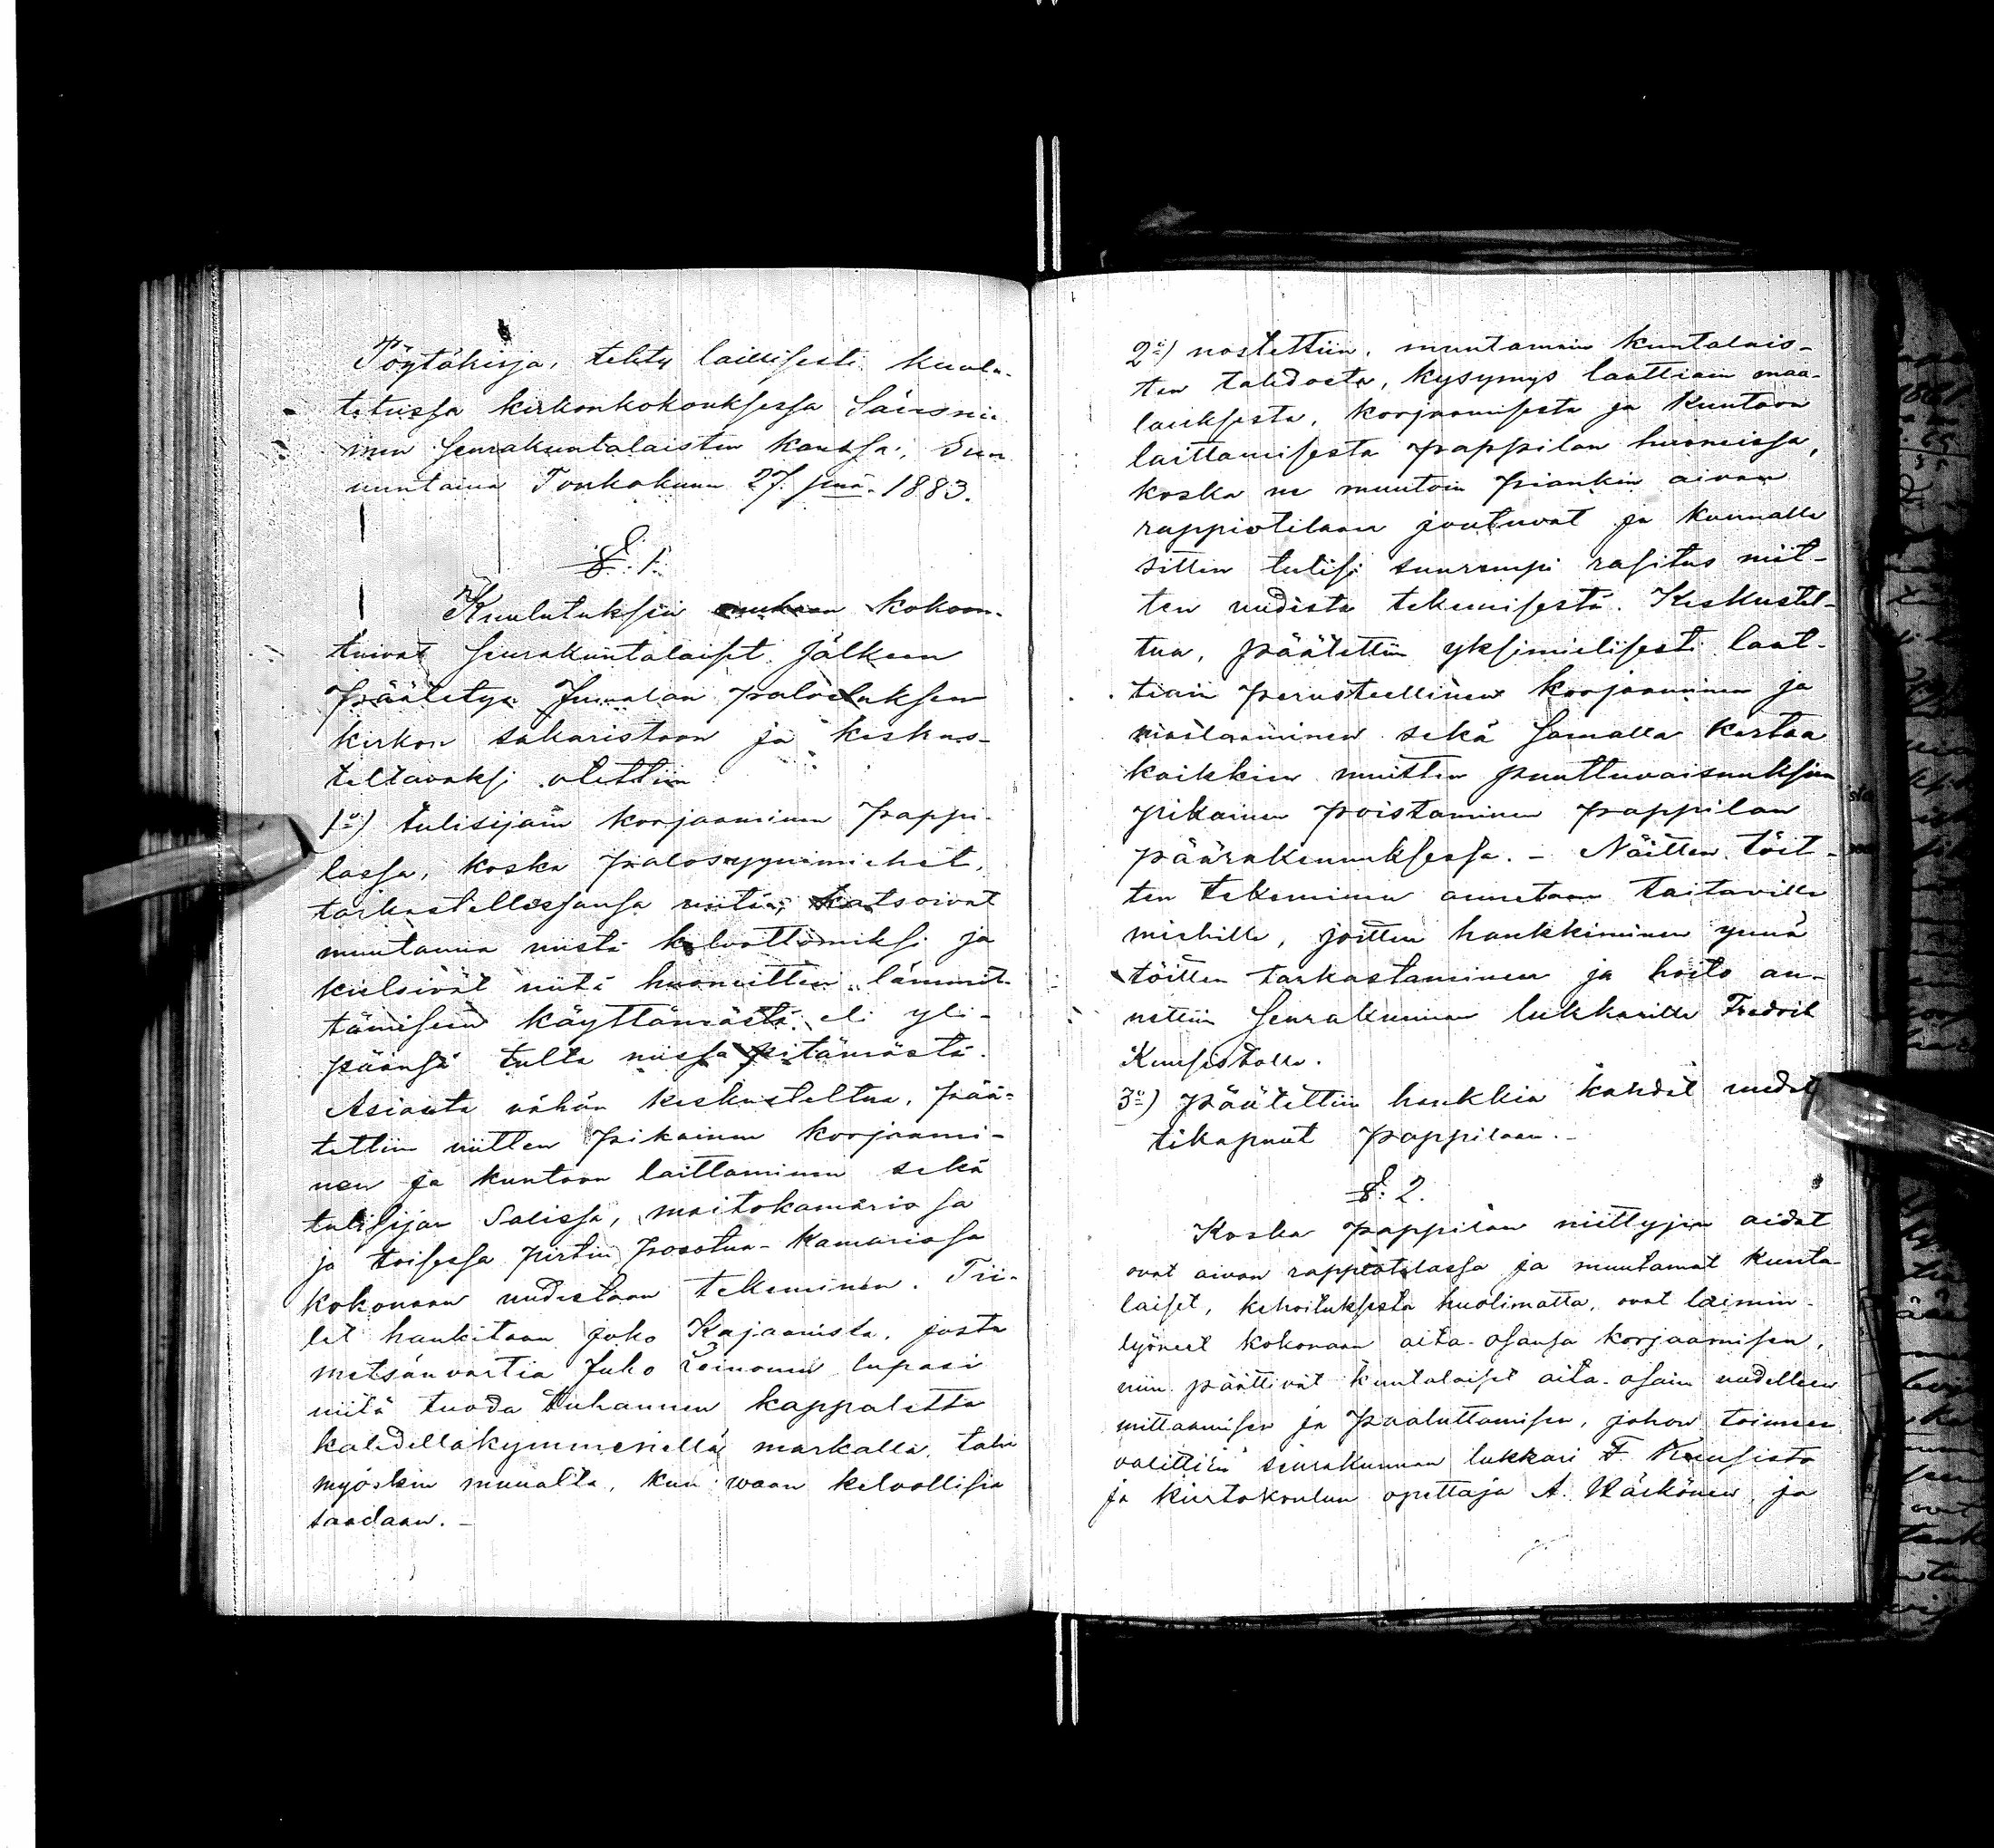 Pöytäkirja, tehty laillisesti kuulu-
tetussa kirkonkokouksessa Säräisnie-
men seurakuntalaisten kanssa, Sun-
nuntaina Toukokuun 27. pnä. 1883.
§. 1.
Kuulutuksen mukaan kokoon-
tuivat seurakuntalaiset jälkeen
päätetyn Jumalan palveluksen
kirkon sakaristoon ja keskus-
teltavaksi otettiin
1o) tulisijain korjaaminen pappi-
lassa, koska palosyynimiehet,
tarkastellessansa niitä, katsoivat
muutamia niistä kelvottomiksi ja
kielsivät niitä huoneitten lämmit-
tämiseen käyttämästä eli yli-
päänsä tulta niissä pitämästä.
Asiasta vähän keskusteltua, pää-
tettiin niitten pikainen korjaami-
nen ja kuntoon laittaminen sekä
tulisijan Salissa, maitokamarissa
ja toisessa pirtin porstua-kamarissa
kokonaan uudestaan tekeminen. Tii-
let hankitaan joko Kajaanista, josta
metsänvartia Juho Leinonen lupasi
niitä tuoda tuhannen kappaletta
kahdellakymmenellä markalla, tahi
myöskin muualta, kun waan kelvollisia
saadaan. —
2o) nostettiin, muutamain kuntalais-
ten tahdosta, kysymys laattiain maa-
lauksesta, korjaamisesta ja kuntoon
laittamisesta pappilan huoneissa,
koska ne muutoin piankin aivan
rappiotilaan joutuvat ja kunnalle
sitten tulisi suurempi rasitus niit-
ten uudista tekemisestä. Keskustel-
tua, päätettiin yksimielisesti laat-
tiain perusteellinen korjaaminen ja
maalaaminen sekä samalla kertaa
kaikkien muitten puuttuvaisuuksien
pikainen poistaminen pappilan
päärakennuksessa. — Näitten töit-
ten tekeminen annetaan taitaville
miehille, joitten hankkiminen ynnä
töitten tarkastaminen ja hoito an-
nettiin seurakunnan lukkarille Fredrik
Kuusistolle.
3o) päätettiin hankkia kahdet uudet
tikapuut pappilaan. —
§. 2.
Koska pappilan niittyjen aidat
ovat aivan rappiotilassa ja muutamat kunta-
laiset, kehoituksesta huolimatta, ovat laimin-
lyöneet kokonaan aita-osansa korjaamisen,
niin päättivät kuntalaiset aita-osain uudelleen
mittaamisen ja paaluttamisen, johon toimeen
valittiin seurakunnan lukkari F. Kuusisto
ja kiertokoulun opettaja A. Räikönen, ja